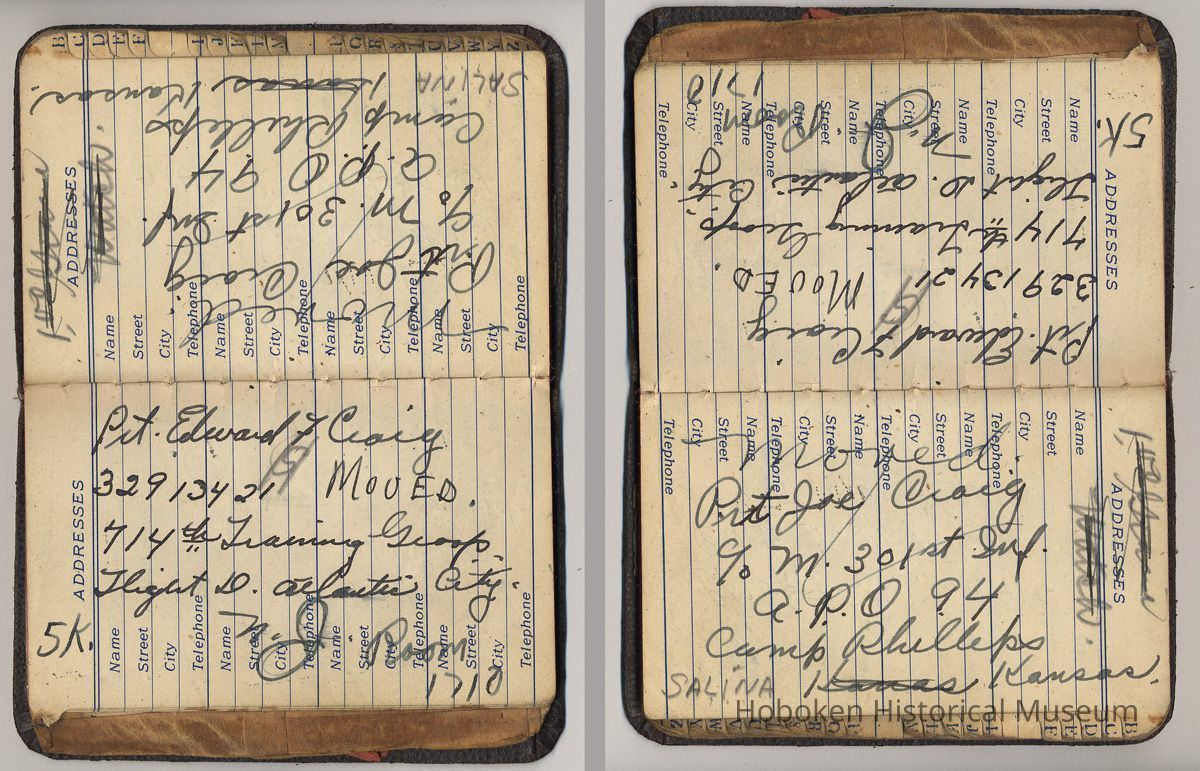 Pvt. Edward F Craig
32913421 MOVED.
714th Training Group,
Flight D. Atlantic City.
N. J. Room
1710
5K.
ADDRESSES
Name
Street
City
Telephone
Name
Street
City
Telephone
Name
Street
City
Telephone
Name
Street
City
Telephone
Moved
Pvt Joe Craig
c/o M. 301st Inf.
A.P.O. 94
Camp Phillips
SALINA Kansas Kansas.
ADDRESSES
Name
Street
City
Telephone
Name
Street
City
Telephone
Name
Street
City
Telephone
Name
Street
City
Telephone
Hoboken Historical Museum